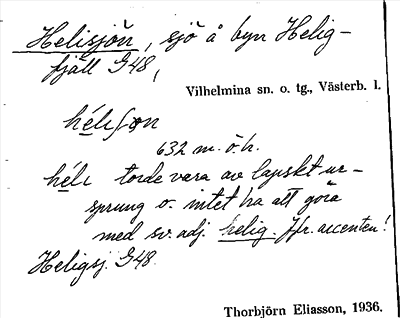 Helisjön, sjö å byn Helig-
fjäll G48,
Vilhelmina sn. o. tg., Västerb. l.
632 m. ö. h.
héli torde vara av lapskt ur-
sprung o. intet ha att göra
med sv. adj. helig. Jfr. accenten!
Heligsj. G48.
Thorbjörn Eliasson, 1936.